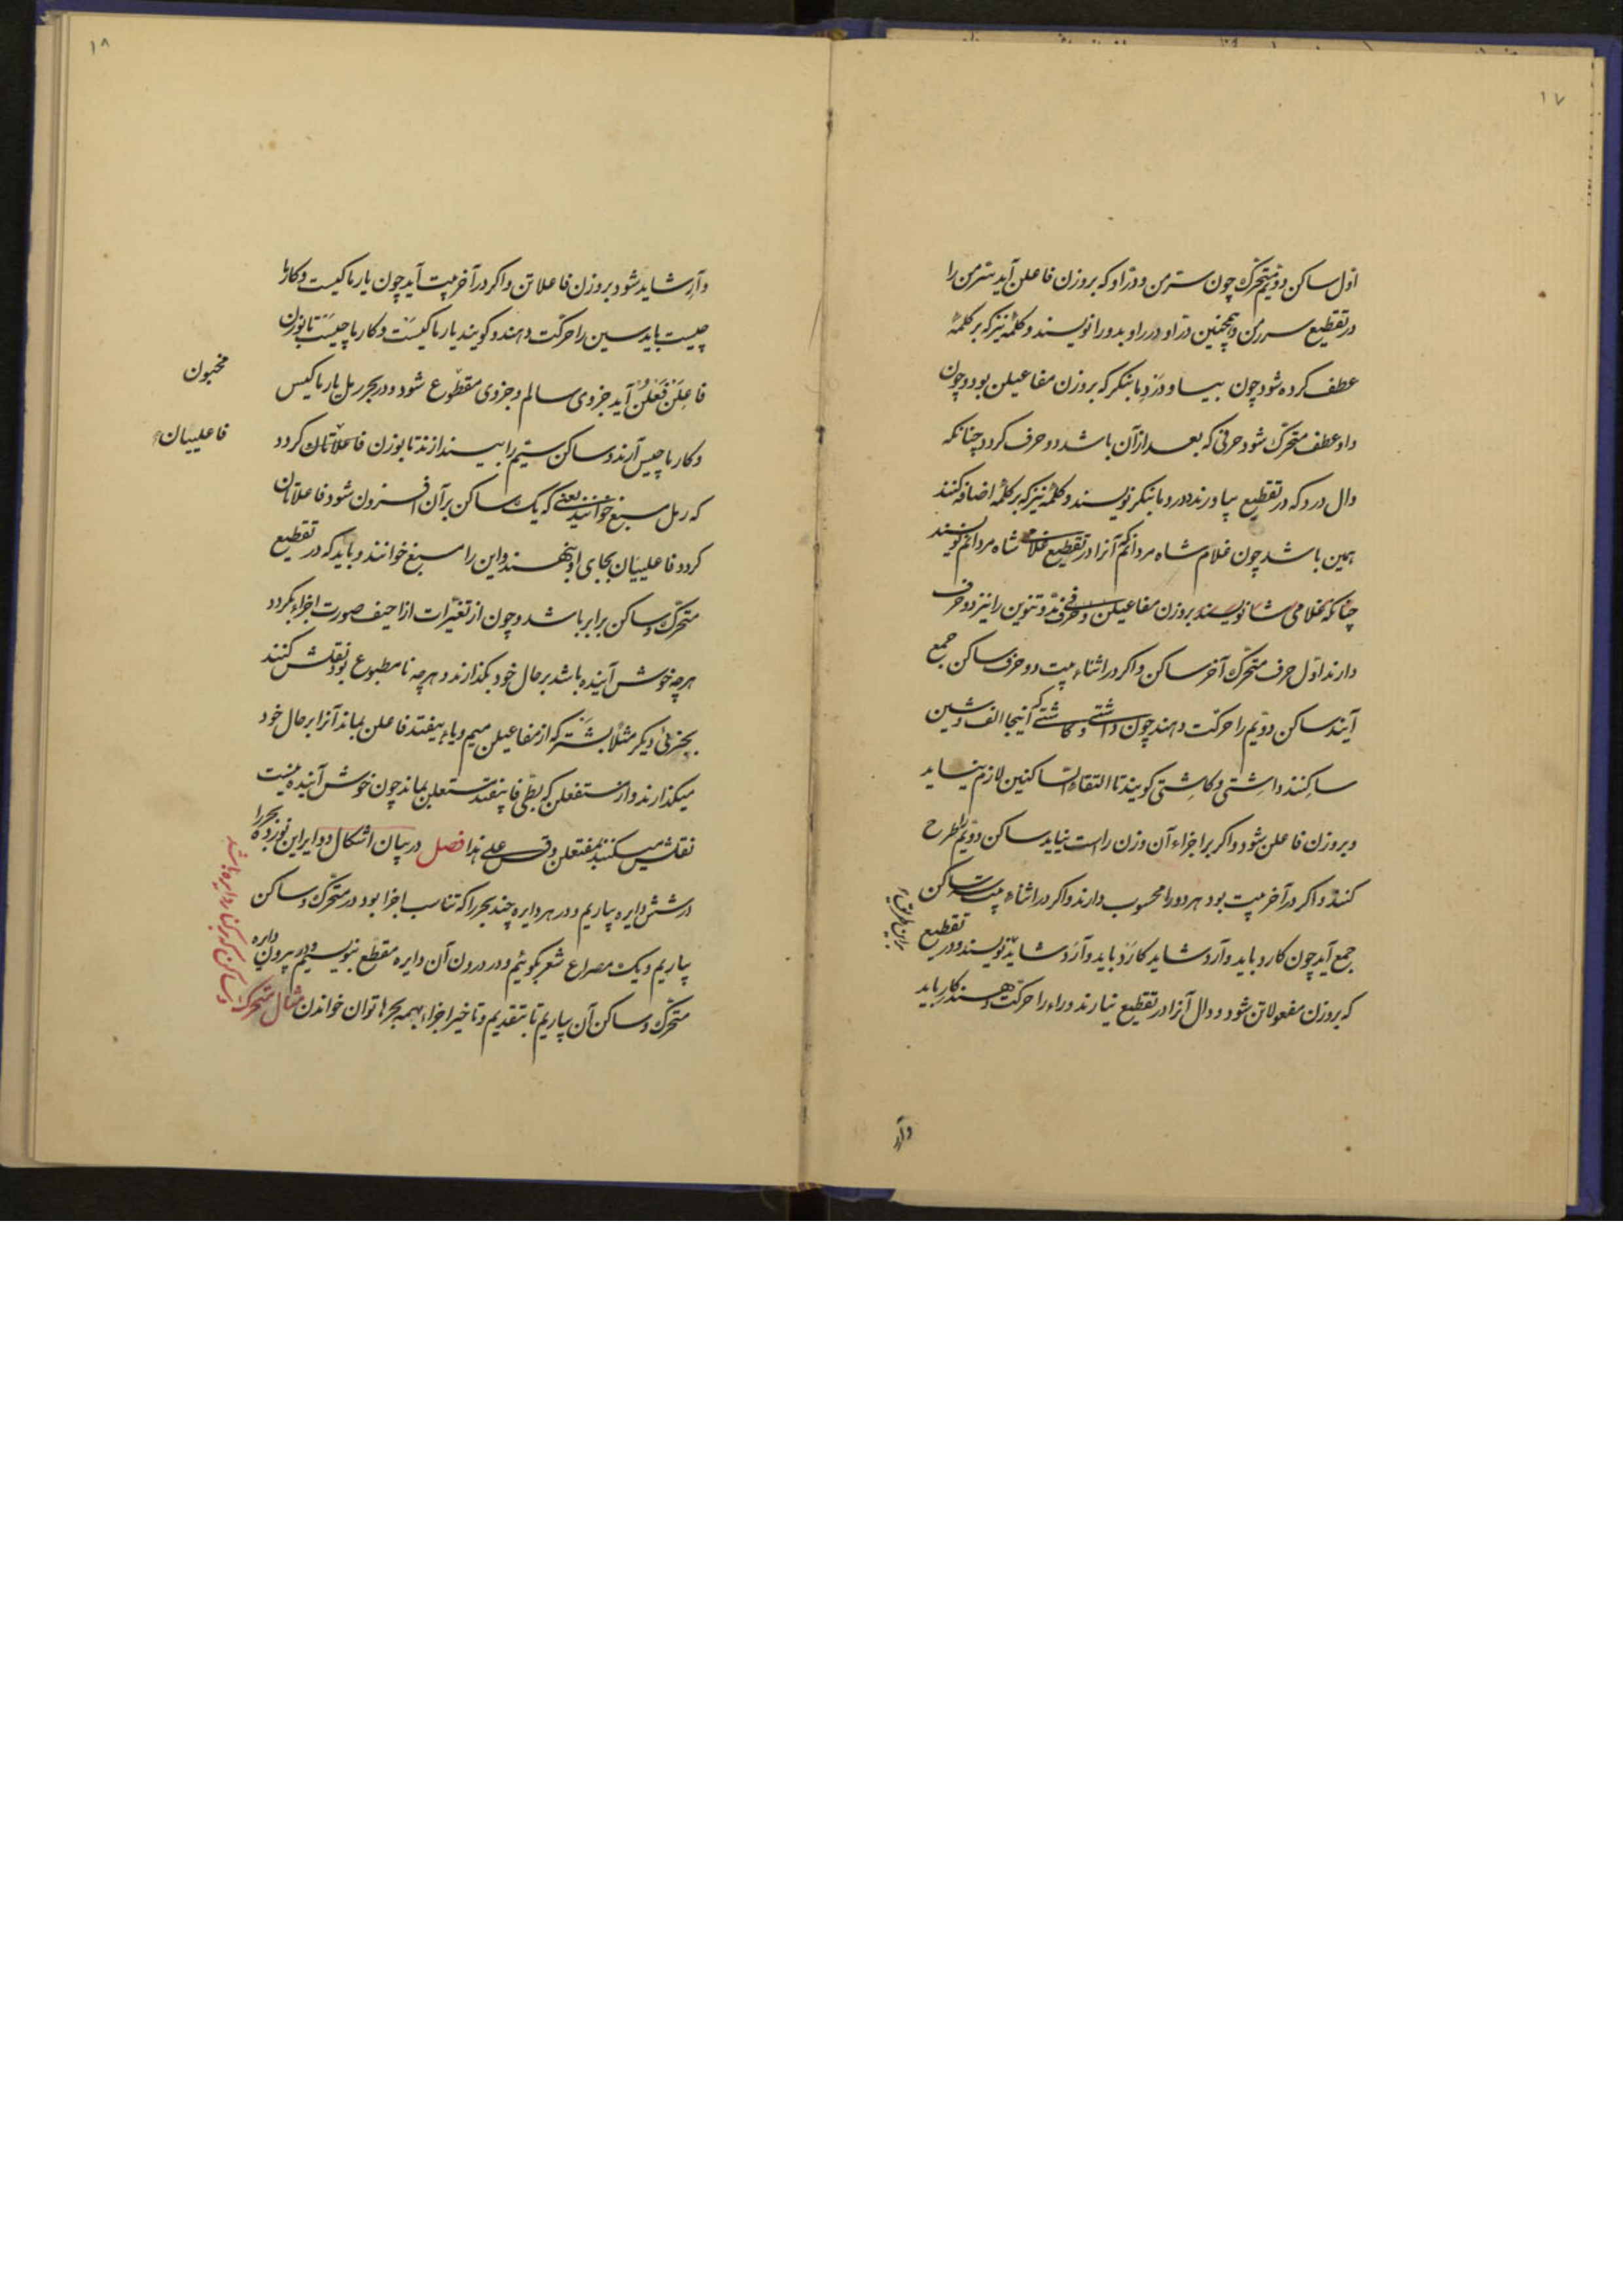 ۱۷
اوّل ساکن دویّم متحرّک چون سترمن و دراو که بروزن فاعلن آید سترمن را
در تقطیع سررمن و همچنین دراو درراو بدو را نویسند و کلمهٔ نیز که بر کلمهٔ
عطف کرده شود چون بیا و درد ما بنگر که بروزن مفاعیلن بود و چون
واو عطف متحرّک شود حرفی که بعد از آن باشد دو حرف گردد چنانکه
دال درد که در تقطیع بیاورند درد ما بنگر نویسند و کلمهٔ نیز که بر کلمهٔ اضافه کنند
همین باشد چون غلام شاه مردانم که آنرا در تقطیع غلامی شاه مردانم نویسند
چنانکه غلامی شا نویسند بروزن مفاعیلن و حرفی مدّ و تنوین را نیز دو حرف
دارند اوّل حرف متحرّک آخر ساکن و اگر در اثناء بیت دو حرف ساکن جمع
آیند ساکن دویّم را حرکت دهند چون داشتی و کاشتی که اینجا الف و شین
ساکنند داشتی و کاشتی گویند تا التقاء السّاکنین لازم نیاید
و بروزن فاعلن شود و اگر بر اجزاء آن وزن راست نیاید ساکن دویّم را طرح
کنند و اگر در آخر بیت بود هر دو را محسوب دارند و اگر در اثناء بیت سه ساکن
جمع آید چون کارد باید و آرد شاید کارد باید و آرد شاید نویسند و در تقطیع
که بروزن مفعولاتن شود و دال آنرا در تقطیع نیارند و راء را حرکت دهند کار باید
وآر
۱۸
وآر شاید شود بروزن فاعلاتن و اگر در آخر بیت آید چون یار ما کیست و کار ما
چیست باید سین را حرکت دهند و گویند یار ما کیست و کار ما چیست تا بوزن
فاعلن فعلن آید جزوی سالم و جزوی مقطوع شود و در بحر رمل یار ما کیس
مخبون
و کار ما چیس آرند و ساکن سیّم را بیندازند تا بوزن فاعلاتان گردد
فاعلییان
که رمل مسبغ خوانند یعنی که یک ساکن بر آن افزون شود فاعلاتان
گردد فاعلییان بجای او نهند و این را مسبغ خوانند و باید که در تقطیع
متحرّک و ساکن برابر باشد و چون از تغیّرات ازاحیف صورت اجزاء بگردد
هر چه خوش آینده باشد بر حال خود بگذارند و هر چه نامطبوع بود نقلش کنند
بجزئی دیگر مثلا بشتر که از مفاعیلن میم و یاء بیفتد فاعلن بماند آنرا بر حال خود
میگذارند و از مستفعلن که بطی فا بیفتد مستعلن بماند چون خوش آینده نیست
نقلش میکنند بمفتعلن و قس علی هذا فصل در بیان اشکال دوایر این نوزده بحر را
در شش دایره بیاریم و در هر دایره چند بحر را که تناسب اجزا بود در متحرّک و ساکن
بیاریم و یک مصراع شعر بگوئیم و در درون آن دایره مقطّع بنویسیم و در بیرون دایره
متحرّک و ساکن آن بیاریم تا بتقدیم و تاخیر اجزاء بهمه بحرها توان خواندن مثال متحرّک
و ساکن که بر کنار دایره باشد